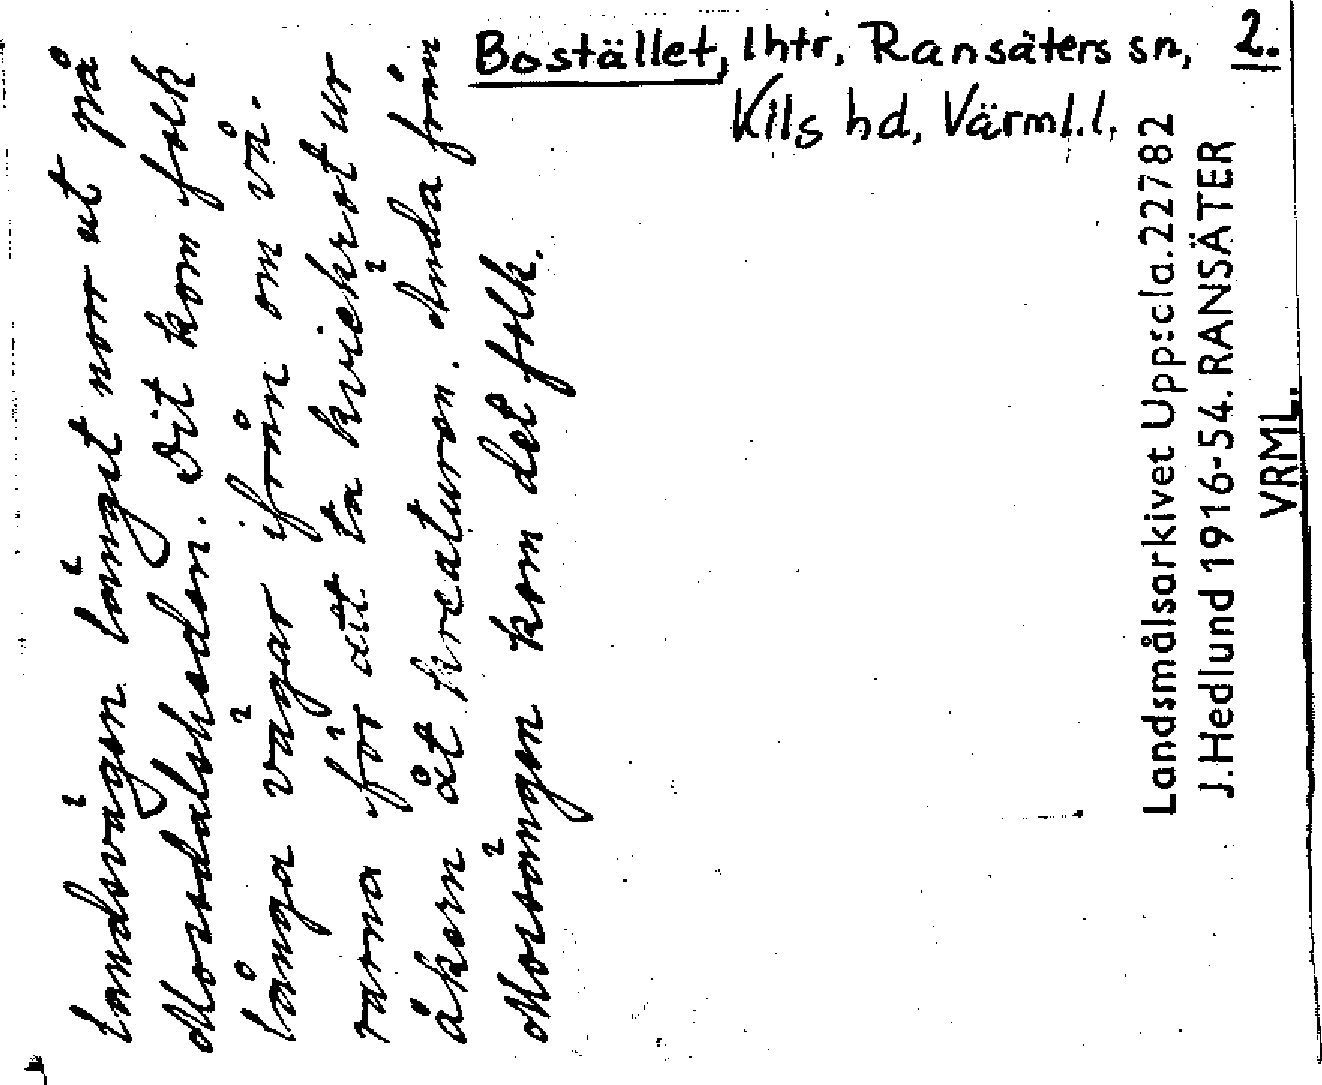 Bostället, lhtr, Ransäters sn, 2.
Kils hd, Värml.l.
landsvägen långt norr ut på
Morsdalsheden. Dit kom folk
långa vägar ifrån om vå-
rarna för att ta kviekrot ur
åkern åt kreaturen. Ända från
Morsängen kom det folk.
Landsmålsarkivet Uppsala. 22782
J. Hedlund 1916-54. RANSÄTER
VRML.